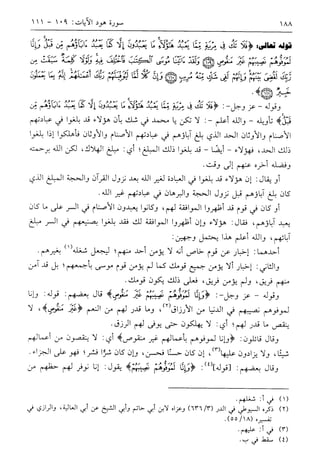 ١٨٨ سورة هود الآيات: ١٠٩ - ١١١
قوله تعالى: ﴿فَلَا تَكُ فِي مِرْيَةٍ مِّمَّا يَعْبُدُ هَٰؤُلَاءِ مَا يَعْبُدُونَ إِلَّا كَمَا يَعْبُدُ ءَابَاؤُهُم مِّن قَبْلُ وَإِنَّا
لَمُوَفُّوهُمْ نَصِيبَهُمْ غَيْرَ مَنقُوصٍ ﴿١٠٩﴾ وَلَقَدْ ءَاتَيْنَا مُوسَى الْكِتَابَ فَاخْتُلِفَ فِيهِ وَلَوْلَا كَلِمَةٌ سَبَقَتْ مِن
رَّبِّكَ لَقُضِيَ بَيْنَهُمْ وَإِنَّهُمْ لَفِي شَكٍّ مِّنْهُ مُرِيبٍ ﴿١١٠﴾ وَإِنَّ كُلًّا لَّمَّا لَيُوَفِّيَنَّهُمْ رَبُّكَ أَعْمَالَهُمْ إِنَّهُ بِمَا يَعْمَلُونَ
خَبِيرٌ ﴿١١١﴾﴾.
وقوله - عز وجل-: ﴿فَلَا تَكُ فِي مِرْيَةٍ مِّمَّا يَعْبُدُ هَٰؤُلَاءِ مَا يَعْبُدُونَ إِلَّا كَمَا يَعْبُدُ ءَابَاؤُهُم مِّن
قَبْلُ﴾ تأويله - والله أعلم -: لا تكن يا محمد في شك بأن هؤلاء قد بلغوا في عبادتهم
الأصنام والأوثان الحد الذي بلغ آباؤهم في عبادتهم الأصنام والأوثان فأهلكوا إذا بلغوا
ذلك الحد، فهؤلاء - أيضًا - قد بلغوا ذلك المبلغ؛ أي: مبلغ الهلاك، لكن الله برحمته
وفضله أخره عنهم إلى وقت.
أو يقال: إن هؤلاء قد بلغوا في العبادة لغير الله بعد نزول القرآن والحجة المبلغ الذي
كان بلغ آباؤهم قبل نزول الحجة والبرهان في عبادتهم غير الله.
أو كان في قوم قد أظهروا الموافقة لهم، وكانوا يعبدون الأصنام في السر على ما كان
يعبد آباؤهم، فقال: هؤلاء وإن أظهروا الموافقة لك فقد بلغوا بصنيعهم في السر مبلغ
آبائهم، والله أعلم هذا يحتمل وجهين:
أحدهما: إخبار عن قوم خاص أنه لا يؤمن أحد منهم؛ ليجعل شغله(١) بغيرهم.
والثاني: إخبار ألا يؤمن جميع قومك كما لم يؤمن قوم موسى بأجمعهم؛ بل قد آمن
منهم فريق، ولم يؤمن فريق، فعلى ذلك يكون قومك.
وقوله - عز وجل-: ﴿وَإِنَّا لَمُوَفُّوهُمْ نَصِيبَهُمْ غَيْرَ مَنقُوصٍ﴾ قال بعضهم: قوله: وإنا
لموفوهم نصيبهم في الدنيا من الأرزاق(٢)، وما قدر لهم من النعم ﴿غَيْرَ مَنقُوصٍ﴾، لا
ينقص ما قدر لهم؛ أي: لا يهلكون حتى يوفى لهم الرزق.
وقال قائلون: ﴿وإنا لموفوهم بأعمالهم غير منقوص﴾ أي: لا ينقصون من أعمالهم
شيئًا، ولا يزادون عليها(٣)، إن كان حسنًا فحسن، وإن كان شرًا فشر؛ فهو على الجزاء.
وقال بعضهم: [قوله](٤): ﴿وَإِنَّا لَمُوَفُّوهُمْ نَصِيبَهُمْ﴾ يقول: إنا نوفر لهم حظهم من
(١) في أ: شغلهم.
(٢) ذكره السيوطي في الدر (٦٣٦/٣) وعزاه لابن أبي حاتم وأبي الشيخ عن أبي العالية، والرازي في
تفسيره (١٨/٥٥).
(٣) في أ: عليهم.
(٤) سقط في ب.